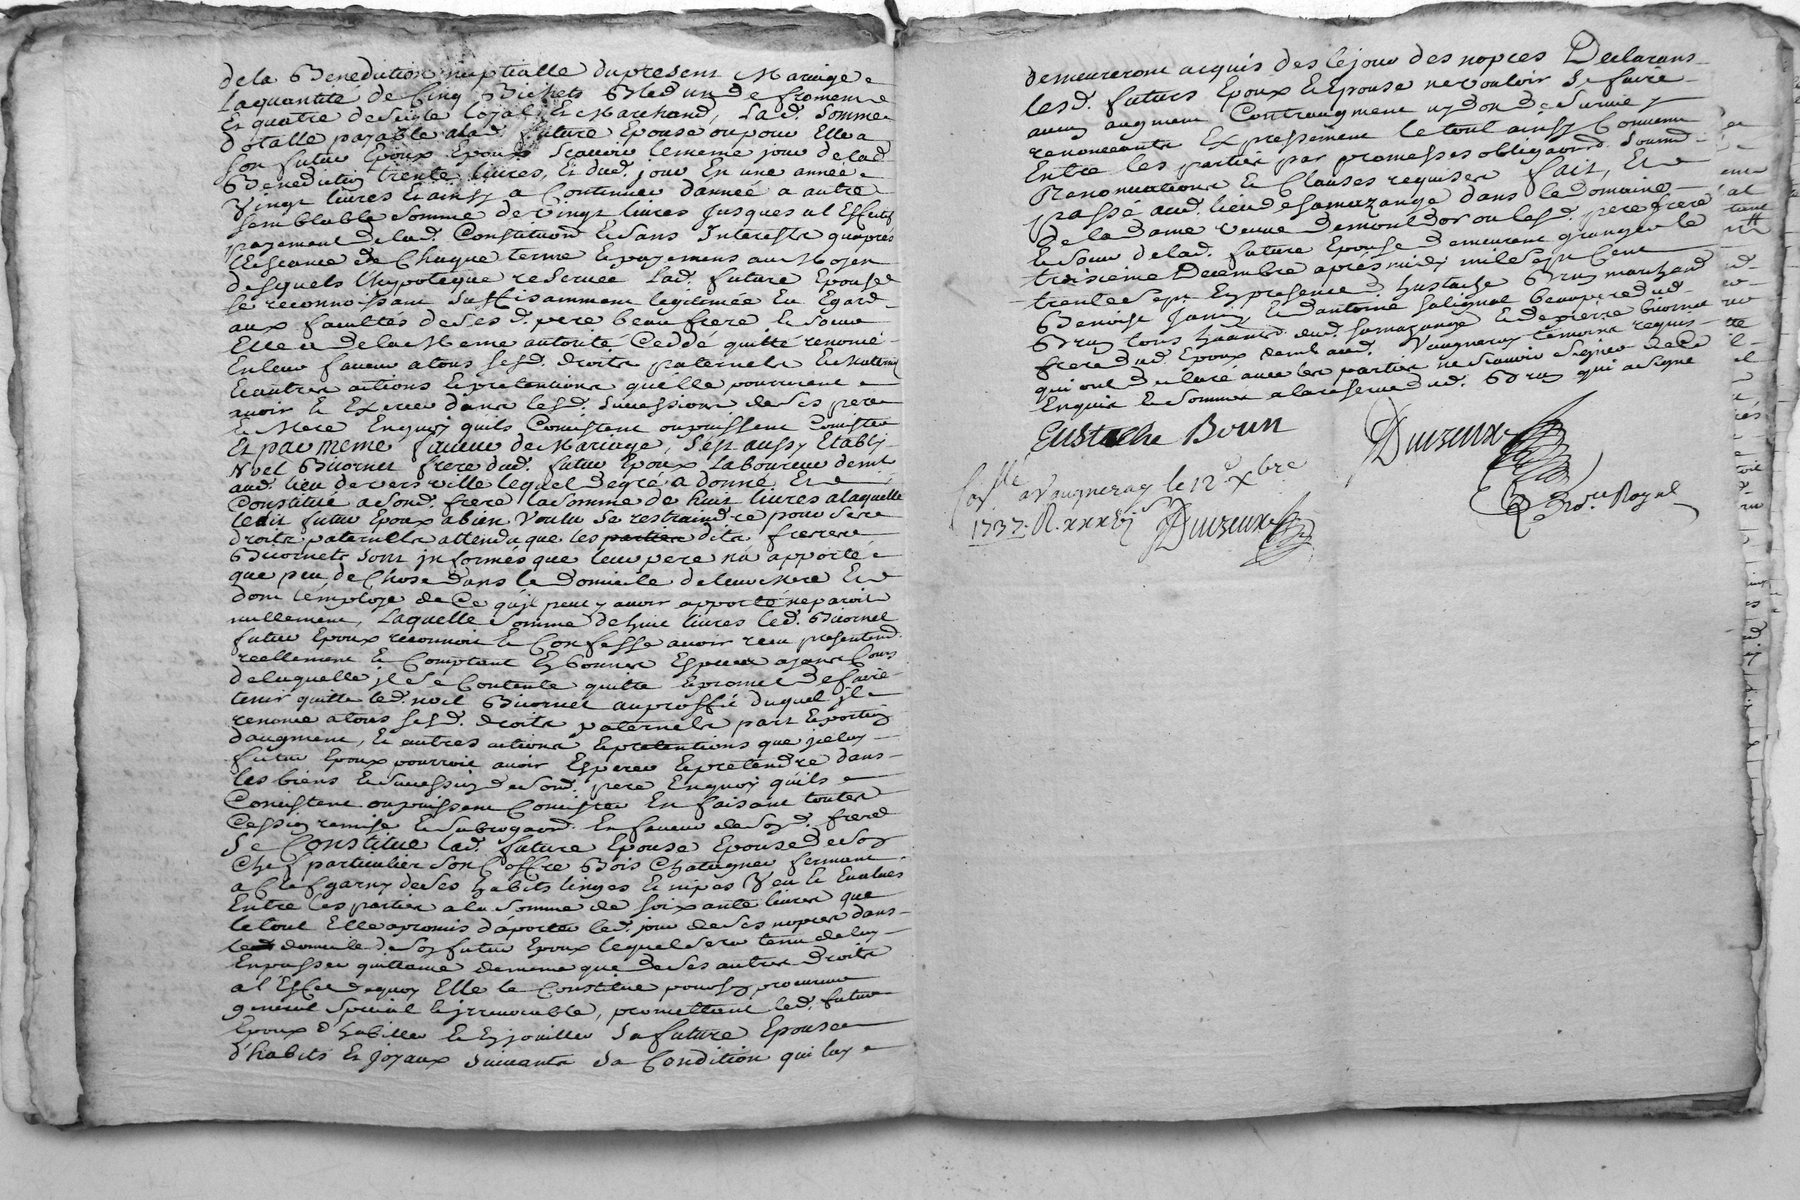 de la Benediction nuptialle du present Mariage
La quantité de Cinq Bichets Bled un de froment
Et quatre de seigle loyal Et Marchand, La d. somme
Dotalle payable a la d. future Epouse ou pour Elle a
son futur Epoux Epoux Scauoir le meme jour de la d.
Benediction trente liures, Et du d. jour En une année
Vingt liures Et ainsy a Continuer d'année a autre
semblable somme de Vingt liures Jusques a l'Effectif
payement de la d. Constitution Et sans Interests qu'apres
l'Escéance de Chaque terme Et payement au Moyen
desquels l'hypoteque reseruée La d. future Epouse
se reconnoissant suffisamment legitimée Eu Egard
aux facultés de ses d. pere beau frere Et soeur
Elle a de la Meme autorité Ceddé quitté renoncé
En leur faueur a tous ses d. droits paternels Et Maternels
Et autres actions Et pretentions qu'elle pourroient
auoir Et Exercer dans les d. successions de ses pere
Et Mere En quoy quils Consistent ou puissent Consister
Et par meme faueur de Mariage, s'est aussy Etably
Noel Bicornet frere du d. futur Epoux Laboureur demt
aud. lieu de vers ville lequel de gré a donné Et
Constitué a son d. frere la somme de huit liures a laquelle
ledit futur Epoux a bien Voulu se restraindre pour ses
droits paternels attendu que les parties dits freres
Bicornets sont jnformés que leur pere n'a apporté
que peu de Chose dans le domicile de leur Mere Et
dont l'employe de Ce qu'jl peut y auoir apporté ne paroit
nullement, Laquelle somme de huit liures led. Bicornet
futur Epoux reconnoit Et Confesse auoir recu presentemt
reellement Et Comptant En bonnes Especes ayant Cours
de laquelle jl se Contente quitte Et promet de faire
tenir quitte led. noel Bicornet au proffit duquel jl
renonce a tous ses d. droits paternels part Et portion
d'augment, Et autres actions Et pretentions que jceluy
futur Epoux pourroit auoir Esperer Et pretendre dans
les biens Et succession de son d. pere En quoy qu'ils
Consistent ou puissent Consister En faisant toutes
Cession remise Et subrogaon En faueur de son d. frere
Se Constitue la d. future Epouse Epouse de son
Chef particulier son Coffre Bois Chatagner fermant
a Clef garny de ses habits linges Et nipes Veu Et Eualués
Entre les parties a la somme de soixante liures que
le tout Elle a promis d'aporter led. jour de ses nopces dans
le domicile de son futur Epoux lequel sera tenu de luy
En passer quittance de meme que de ses autres droits
a l'Effet de quoy Elle le Constitue pour son procureur
general special Et jrreuocable, promettant led. futur
Epoux d'habiller Et Enjoailler sa future Epouse
d'habits Et joyaux suiuants sa Condition qui luy
demeureront acquis des le jour des nopces Declarans
les d. futurs Epoux Et Epouse ne vouloir se faire
aucun augment Contraugment ny don de suruie y
renonceants Expressement le tout ainsy Conuenu
Entre les parties par promesses obligaons soumis
Renonciations Et Clauses requises fait, Et
passé aud. lieu de samazange dans le domaine
de la dame veuue demontdor ou les d. pere frere
Et soeur de la d. future Epouse demeurent grangers le
troisieme Decembre aprés midy mil sept Cent
trente sept En presence d'Eustache Brun marchand
Benoist Jamy, Et d'antoine salignat beaupere dud.
Brun tous habitants dud. samazange Et de pierre bicornet
frere dud. Epoux demt aud. Vaugneray temoins requis
qui ont declaré auec les parties ne scauoir signer de Ce
Enquis Et sommés a la reserue dud. Brun qui a signé
Eustache Brun
Duizeux
No.re Royal
Con.lle a Vaugneray le 12e Xbre
1737. R. xxxvj s Duizeux